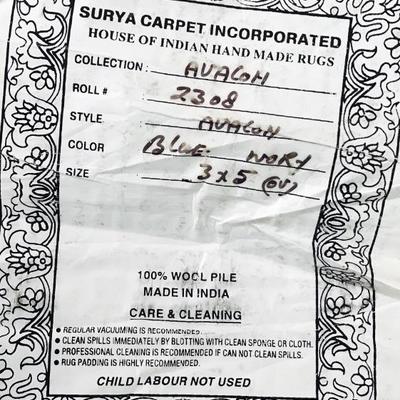 SURYA CARPET INCORPORATED
HOUSE OF INDIAN HAND MADE RUGS
COLLECTION : AVALON
ROLL # 2308
STYLE AVALON
COLOR BLUE IVORY
SIZE 3x5 (OV)
100% WOOL PILE
MADE IN INDIA
CARE & CLEANING
• REGULAR VACUUMING IS RECOMMENDED.
• CLEAN SPILLS IMMEDIATELY BY BLOTTING WITH CLEAN SPONGE OR CLOTH.
• PROFESSIONAL CLEANING IS RECOMMENDED IF CAN NOT CLEAN SPILLS.
• RUG PADDING IS HIGHLY RECOMMENDED.
CHILD LABOUR NOT USED